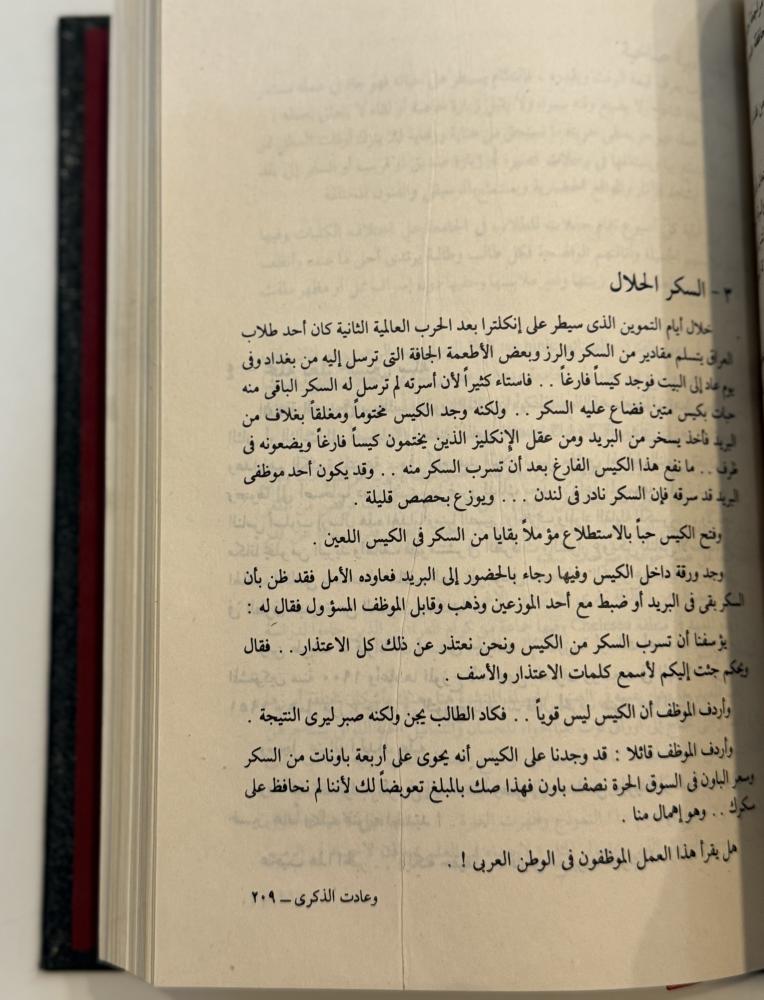 ٣ - السكر الحلال
خلال أيام التموين الذى سيطر على إنكلترا بعد الحرب العالمية الثانية كان أحد طلاب
العراق يتسلم مقادير من السكر والرز وبعض الأطعمة الجافة التى ترسل إليه من بغداد وفى
يوم عاد إلى البيت فوجد كيساً فارغاً . . فاستاء كثيراً لأن أسرته لم ترسل له السكر الباقى منه
حبات بكيس متين فضاع عليه السكر . . ولكنه وجد الكيس مختوماً ومغلقاً بغلاف من
البريد فأخذ يسخر من البريد ومن عقل الإنكليز الذين يختمون كيساً فارغاً ويضعونه فى
ظرف . . ما نفع هذا الكيس الفارغ بعد أن تسرب السكر منه . . وقد يكون أحد موظفى
البريد قد سرقه فإن السكر نادر فى لندن . . . ويوزع بحصص قليلة .
وفتح الكيس حباً بالاستطلاع مؤملاً بقايا من السكر فى الكيس اللعين .
وجد ورقة داخل الكيس وفيها رجاء بالحضور إلى البريد فعاوده الأمل فقد ظن بأن
السكر بقى فى البريد أو ضبط مع أحد الموزعين وذهب وقابل الموظف المسؤول فقال له :
يؤسفنا أن تسرب السكر من الكيس ونحن نعتذر عن ذلك كل الاعتذار . . فقال
ويحكم جئت إليكم لأسمع كلمات الاعتذار والأسف .
وأردف الموظف أن الكيس ليس قوياً . . فكاد الطالب يجن ولكنه صبر ليرى النتيجة .
وأردف الموظف قائلا : قد وجدنا على الكيس أنه يحوى على أربعة باونات من السكر
وسعر الباون فى السوق الحرة نصف باون فهذا صك بالمبلغ تعويضاً لك لأننا لم نحافظ على
سكرك . . وهو إهمال منا .
هل يقرأ هذا العمل الموظفون فى الوطن العربى ! .
وعادت الذكرى ــ ٢٠٩